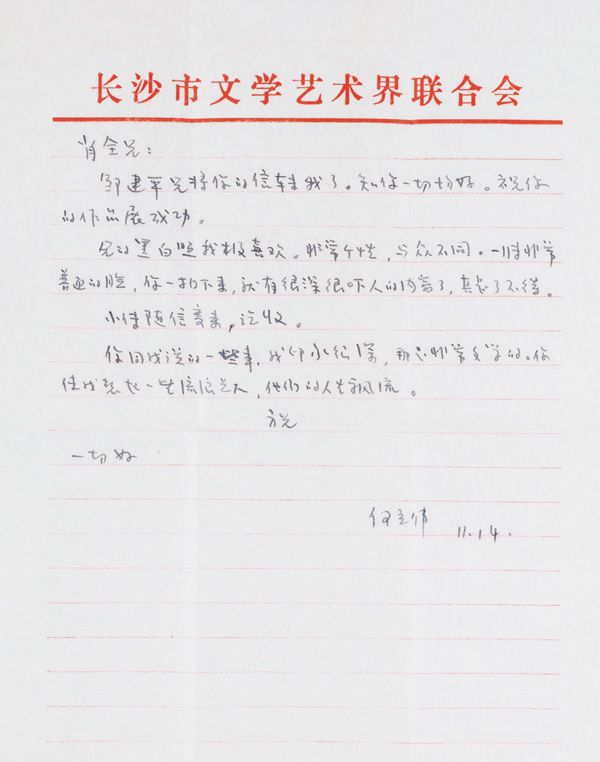 长沙市文学艺术界联合会
肖全兄：
邹建平兄将你的信转来我了。知你一切均好。祝你
的作品展成功。
兄的黑白照我极喜欢。非常个性，与众不同。一张非常
普通的脸，你一拍下来，就有很深很吓人的内容了，真是了不得。
小传随信寄来，迄收。
你同我说的一些事，我印象很深，那是非常文学的。你
使我想起一些流浪艺人，他们的人生飘流。
祝
一切好
何立伟 11.14.